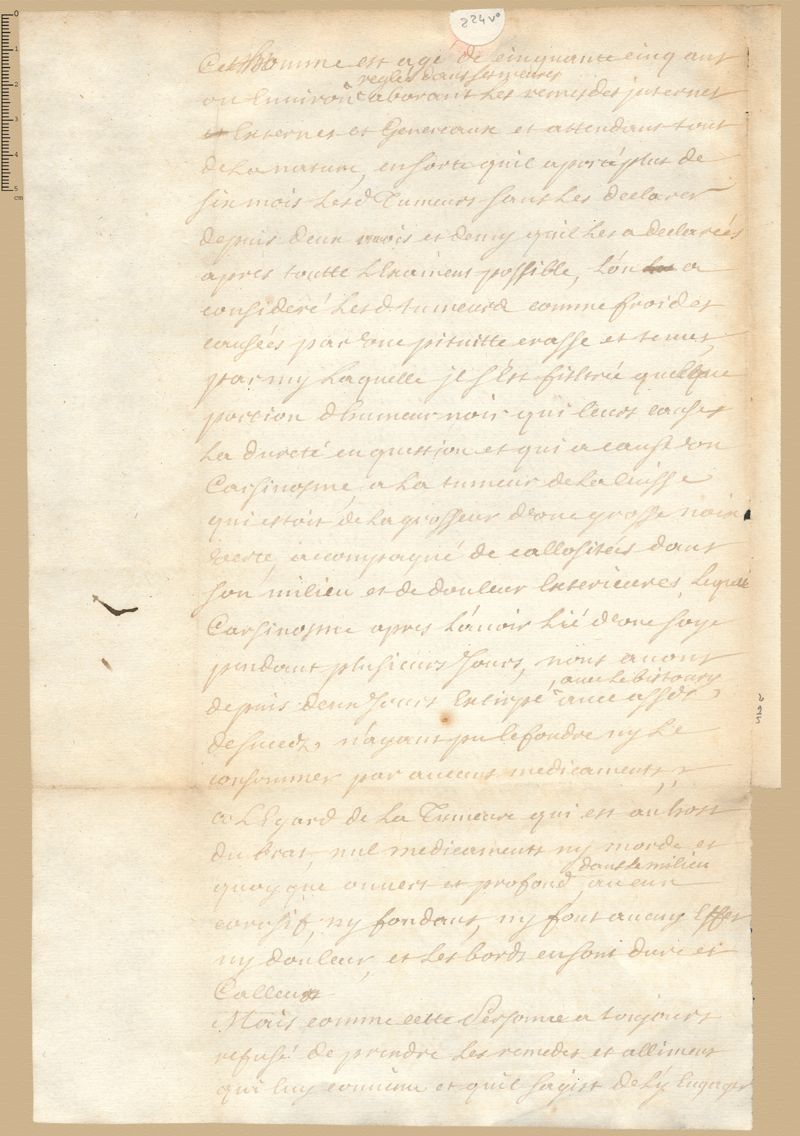 224 v°
Cet Homme est agé de cinquante cinq ans
reglé dans ses meurs
ou Environ aborant Les remesdes jnternes
Externes et Genereaux et attendans tout
de La nature, en sorte qu'il a porté plus de
six mois Lesd Tumeurs sans Les declarer
depuis deux mois et demy quil Les a declareés
apres toutte LExament possible, Lón a
consideré Lesd tumeurs comme froides
causées par une pituitte crasse et
par my Laquelle jl s'Est filtrée quelque
portion dhumeur noir qui leurs causes
La dureté en question et qui a causé un
Carsinosme a La tumeur de La cuisse
qui estoit de La grosseur d'une grosse noix
verte, accompagné de callositées dans
son milieu et de douleur Exterieures, Lequel
Carsinosme apres Lávoir Lié d'une soye
pendant plusieurs Jours, nous avons
avec Le bistoury
depuis deux Jours Extirpé avec assés
de succez, n'ayant pu le fondre ny Le
consommer par aucuns medicaments,
a LEgard de La Tumeur qui est au
du bras, nul medicaments ny morde et
dans le milieu
quoy que ouvert et profond, aucun
corosif, ny fondant, ny font aucun Effet
ny douleur, et Les bords en sont dure et
Calleux
Mais comme cette Personne a toujours
refusé de prendre Les remedes et alliment
qui luy convient et quil sagist de Ly Engager
225